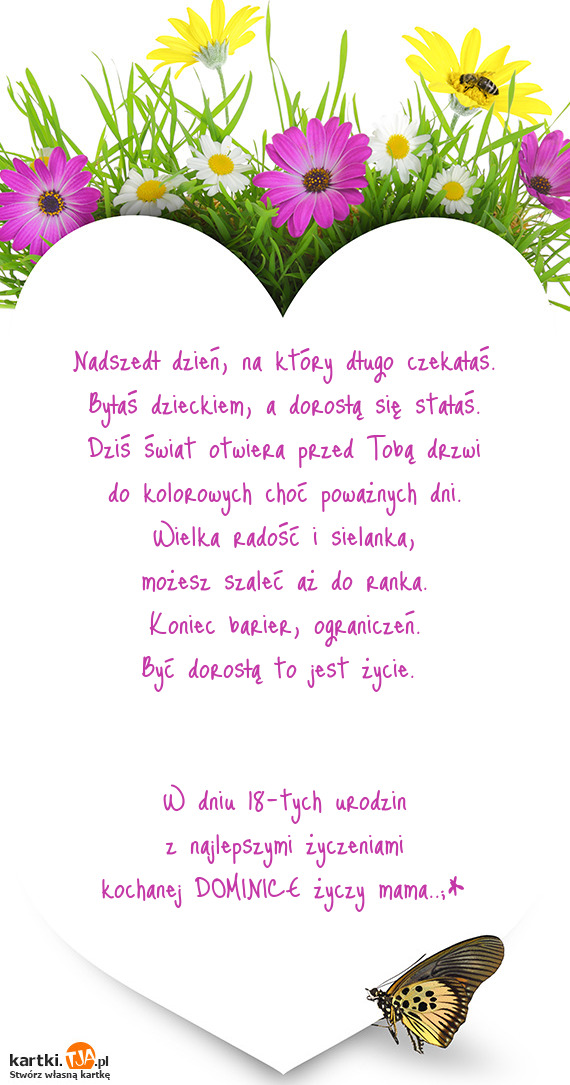 Nadszedł dzień, na który długo czekałaś.
Byłaś dzieckiem, a dorosłą się stałaś.
Dziś świat otwiera przed Tobą drzwi
do kolorowych choć poważnych dni.
Wielka radość i sielanka,
możesz szaleć aż do ranka.
Koniec barier, ograniczeń.
Być dorosłą to jest życie.
W dniu 18-tych urodzin
z najlepszymi życzeniami
kochanej DOMINICE życzy mama..;*
kartki.TJA.pl
Stwórz własną kartkę